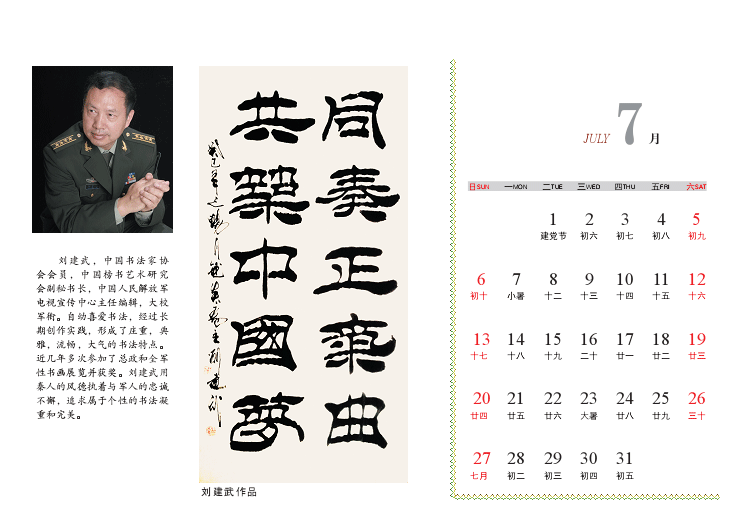 刘建武，中国书法家协
会会员，中国榜书艺术研究
会副秘书长，中国人民解放军
电视宣传中心主任编辑，大校
军衔。自幼喜爱书法，经过长
期创作实践，形成了庄重，典
雅，流畅，大气的书法特点。
近几年多次参加了总政和全军
性书画展览并获奖。刘建武用
秦人的风德执着与军人的忠诚
不懈，追求属于个性的书法凝
重和完美。
同奏正气曲
共筑中國夢
刘建武作品
JULY 7 月
日SUN 一MON 二TUE 三WED 四THU 五FRI 六SAT
1 2 3 4 5
建党节 初六 初七 初八 初九
6 7 8 9 10 11 12
初十 小暑 十二 十三 十四 十五 十六
13 14 15 16 17 18 19
十七 十八 十九 二十 廿一 廿二 廿三
20 21 22 23 24 25 26
廿四 廿五 廿六 大暑 廿八 廿九 三十
27 28 29 30 31
七月 初二 初三 初四 初五